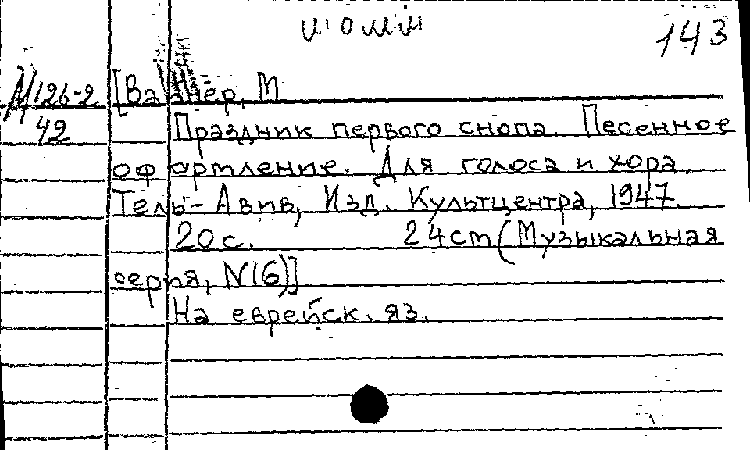 143
М 126-2
42
[Вайнер, М
Праздник первого снопа. Песенное
оформление. Для голоса и хора.
Тель-Авив, Изд. Культцентра, 1947.
20 с. 24 cm (Музыкальная
серия, N16)]
На еврейск. яз.